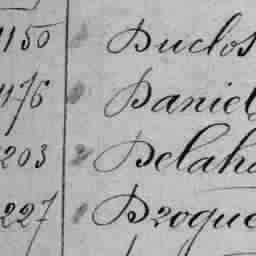 1150 Duclos
1176 Daniel
1203 Delaha
1227 Droque